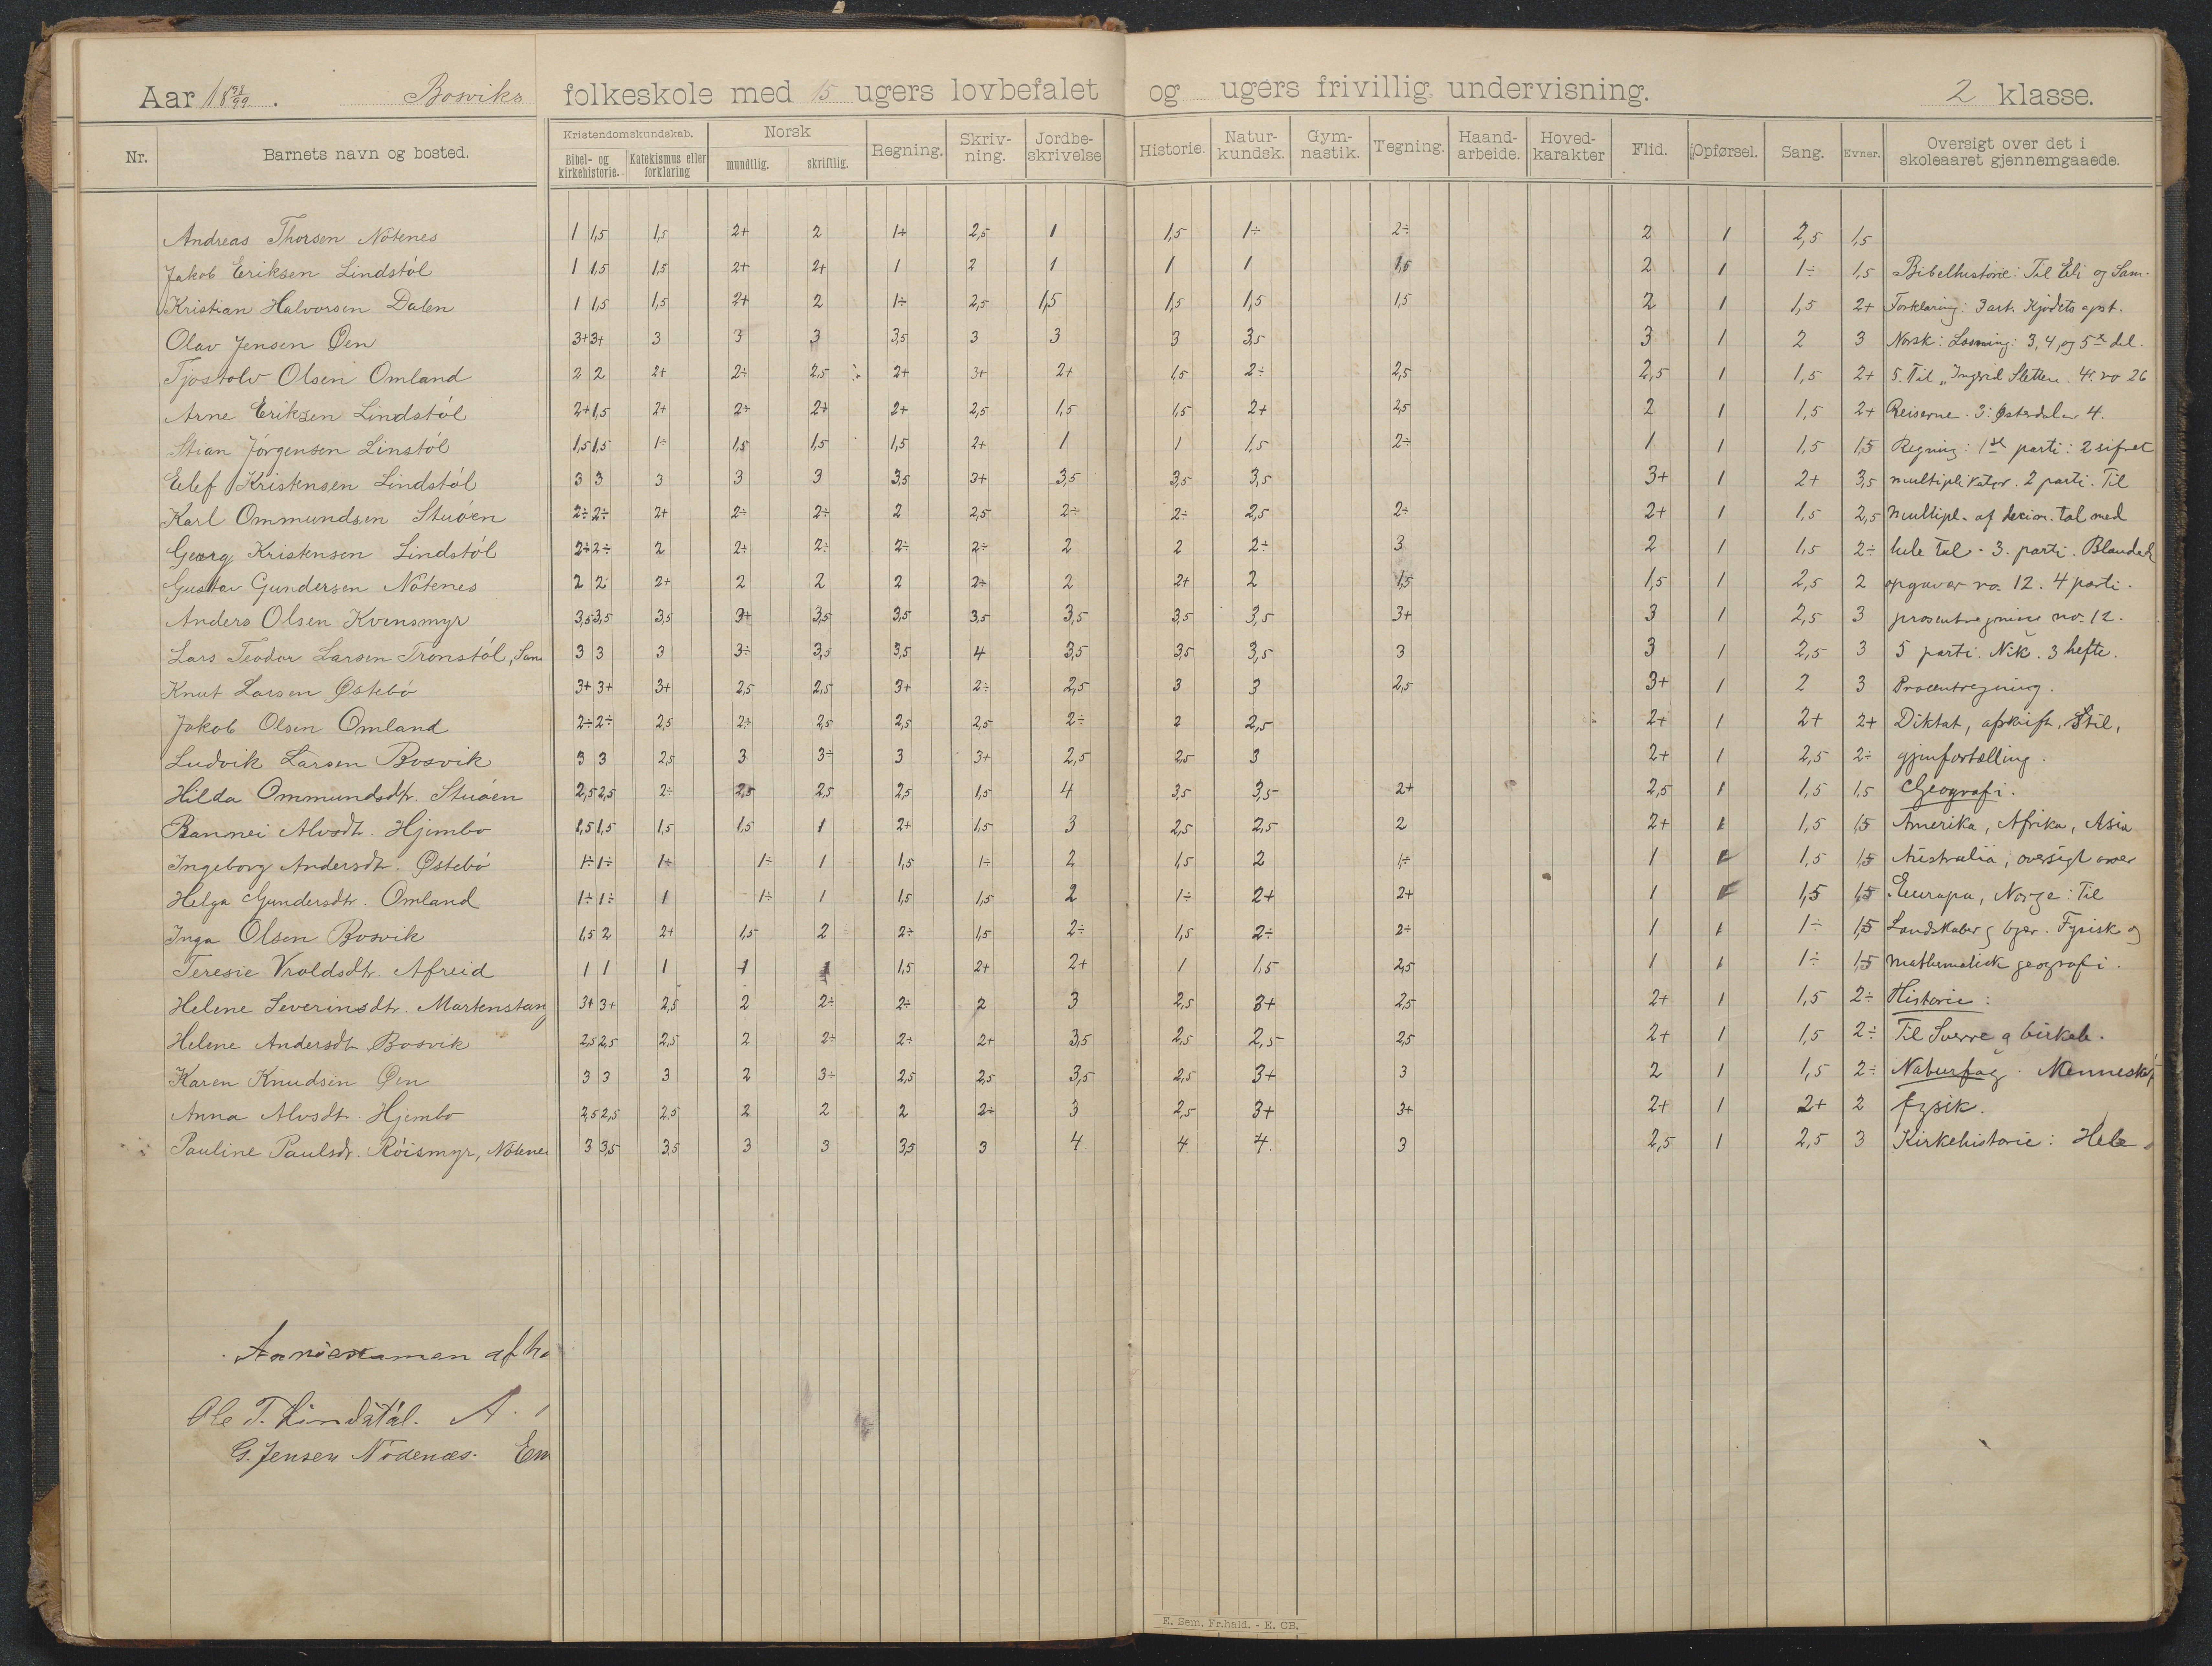 Aar 1898/99. Bosviks folkeskole med 15 ugers lovbefalet og ugers frivillig undervisning. 2 klasse.
Nr. Barnets navn og bosted. Kristendomskundskab. Bibel- og kirkehistorie. Katekismus eller forklaring Norsk mundtlig. skriftlig. Regning. Skriv-ning. Jordbe-skrivelse Historie. Natur-kundsk. Gym-nastik. Tegning. Haand-arbeide. Hoved-karakter Flid. Opførsel. Sang. Evner. Oversigt over det i skoleaaret gjennemgaaede.
Andreas Thorsen Nötenes 1 1,5 1,5 2+ 2 1+ 2,5 1 1,5 1÷ 2÷ 2 1 2,5 1,5
Jakob Eriksen Lindstöl 1 1,5 1,5 2+ 2+ 1 2 1 1 1 1,5 2 1 1÷ 1,5 Bibelhistorie: Til Eli og Sam.
Kristian Halvorsen Dalen 1 1,5 1,5 2+ 2 1÷ 2,5 1,5 1,5 1,5 1,5 2 1 1,5 2+ Forklaring: 3 art. Kjödets opst.
Olav Jensen Öen 3+ 3+ 3 3 3 3,5 3 3 3 3,5 3 1 2 3 Norsk: Læsning: 3, 4, og 5te del.
Tjostolv Olsen Omland 2 2 2+ 2÷ 2,5 2+ 3+ 2+ 1,5 2÷ 2,5 2,5 1 1,5 2+ 5. Til „Ingrid Sletten. 4. no 26
Arne Eriksen Lindstöl 2+ 1,5 2+ 2+ 2+ 2+ 2,5 1,5 1,5 2+ 2,5 2 1 1,5 2+ Reiserne. 3: Østerdalen 4.
Stian Jörgensen Linstöl 1,5 1,5 1÷ 1,5 1,5 1,5 2+ 1 1 1,5 2÷ 1 1 1,5 1,5 Regning: 1ste parti: 2 sifret
Eilef Kristensen Lindstöl 3 3 3 3 3 3,5 3+ 3,5 3,5 3,5 3+ 1 2+ 3,5 multiplikator. 2 parti. Til
Karl Ommundsen Stuöen 2÷ 2÷ 2+ 2÷ 2÷ 2 2,5 2÷ 2÷ 2,5 2÷ 2+ 1 1,5 2,5 multipl. af decim. tal med
Georg Kristensen Lindstöl 2÷ 2÷ 2 2÷ 2÷ 2÷ 2÷ 2 2 2÷ 3 2 1 1,5 2÷ hele tal. 3. parti. Blanded
Gustav Gundersen Nötenes 2 2 2+ 2 2 2 2÷ 2 2+ 2 1,5 1,5 1 2,5 2 opgaver no. 12. 4 parti.
Anders Olsen Kvensmyr 3,5 3,5 3,5 3+ 3,5 3,5 3,5 3,5 3,5 3,5 3+ 3 1 2,5 3 no. 12.
Lars Teodor Larsen Tronstöl, San 3 3 3 3÷ 3,5 3,5 4 3,5 3,5 3,5 3 3 1 2,5 3 5 parti. Nik. 3 hefte.
Knut Larsen Östebö 3+ 3+ 3+ 2,5 2,5 3+ 2÷ 2,5 3 3 2,5 3+ 1 2 3 Procentregning.
Jakob Olsen Omland 2÷ 2÷ 2,5 2+ 2,5 2,5 2,5 2÷ 2 2,5 2+ 1 2+ 2+ Diktat, afskrift, Stil,
Ludvik Larsen Bosvik 3 3 2,5 3 3÷ 3 3+ 2,5 2,5 3 2+ 1 2,5 2÷ gjenfortælling.
Hilda Ommundsdtr. Stuöen 2,5 2,5 2÷ 2,5 2,5 2,5 1,5 4 3,5 3,5 2+ 2,5 1 1,5 1,5 Geografi.
Rannei Alvsdt. Hjembo 1,5 1,5 1,5 1,5 1 2+ 1,5 3 2,5 2,5 2 2+ 1 1,5 1,5 Amerika, Afrika, Asia
Ingeborg Andersdt. Östebö 1÷ 1÷ 1+ 1÷ 1 1,5 1÷ 2 1,5 2 1÷ 1 1 1,5 1,5 Australia, oversigt over
Helga Gundersdtr. Omland 1÷ 1÷ 1 1÷ 1 1,5 1,5 2 1÷ 2+ 2+ 1 1 1,5 1,5 Europa, Norge: Til
Inga Olsen Bosvik 1,5 2 2+ 1,5 2 2÷ 1,5 2÷ 1,5 2÷ 2÷ 1 1 1÷ 1,5 Landskaber og byer. Fysisk og
Teresie Vraldsdtr. Afreid 1 1 1 1 1 1,5 2+ 2+ 1 1,5 2,5 1 1 1÷ 1,5 mathematisk geografi.
Helene Severinsdtr. Martenstang 3+ 3+ 2,5 2 2÷ 2÷ 2 3 2,5 3+ 2,5 2+ 1 1,5 2÷ Historie:
Helene Andersdt. Bosvik 2,5 2,5 2,5 2 2÷ 2÷ 2+ 3,5 2,5 2,5 2,5 2+ 1 1,5 2÷ Til Sverre og birkeb.
Karen Knudsen Öen 3 3 3 2 3÷ 2,5 2,5 3,5 2,5 3+ 3 2 1 1,5 2÷ Naturfag. Mennesket,
Anna Alvsdt. Hjembo 2,5 2,5 2,5 2 2 2 2÷ 3 2,5 3+ 3+ 2+ 1 2+ 2 fysik.
Pauline Paulsdr. Röismyr, Nötene 3 3,5 3,5 3 3 3,5 3 4 4 4. 3 2,5 1 2,5 3 Kirkehistorie: Hele
examen afho
Ole T. Lindstøl. A.
G. Jensen Nødenæs. Em
E. Sem, Fr.hald. - E. CB.